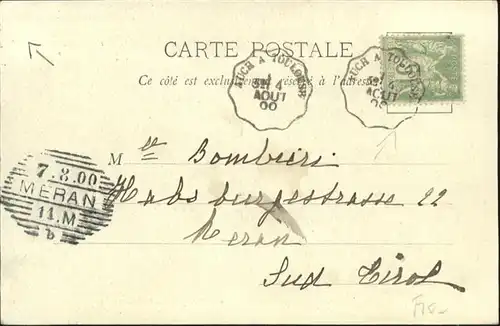 CARTE POSTALE
Ce côté est exclusivement réservé à l'adresse
AUCH A TOULOUSE
4
AOUT
00
AUCH A TOULOUSE
AOUT
7.8.00
MERAN
11.M
b
Mlle Bombieri
Habsburgestrasse 22
Meran
Sud Tirol